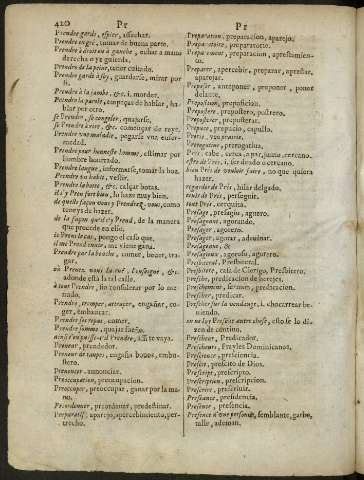 420 Pr
Prendre garde, espier, assechar.
Prendre en gré, tomar de buena parte.
Prendre à droit ou à gauche, echar a mano
derecha o yzquierda.
Prendre de la peine, tener cuidado.
Prendre garde à soy, guardarse, mirar por
si.
Prendre à la jambe, &c. i. morder.
Prendre la parole, empeçar de hablar, ha
blar per otro.
se Prendre, se congeler, quajarse.
se Prendre à rire, &c. començar de reyr.
Prendre vne maladie, pegarse vna enfer-
medad.
Prendre pour honneste homme, estimar por
hombre honrrado.
Prendre langue, informarse, tomar la boz.
Prendre vn habit, vestir.
Prendre la botte, &c. calçar botas.
il s'y Prent fort bien, lo haze muy bien.
de quelle façon vous y Prendrez vous, como
teneys de hazer.
de la façon qu'il s'y Prend, de la manera
que procede en ello.
ie Prens le cas, pongo el caso que.
il me Prend enuie, me viene gana.
Prendre par la bouche, comer, beuer, tra-
gar.
où Prenez vous la rue, l'enseigne, &c.
adonde está la tal calle.
à tout Prendre, sin considerar por lo me-
nudo.
Prendre, tromper, attraper, engañar, co-
ger, embaucar.
Prendre son repas, comer.
Prendre somme, quajar sueño.
ainsi
Preneur, prendedor.
Preneur de taupes, engaña bouos, embu-
stero.
Prenoncer, annunciar.
Preoccupation, preocupacion.
Preoccuper, preocupar, ganar por la ma-
no.
Preordonner, preordinar, predestinar.
Preparatif, aparejo, apercebimiento, per-
trecho.
Pr
Preparation, preparacion, aparejo.
Preparatoire, preparatorio.
Preparement, preparacion, aprestamien-
to.
Preparer, apercebir, preparar, aprestar,
aparejar.
Preposer, anteponer, proponer, poner
delante.
Preposition, preposicion.
Prepostere, prepostero, postrero.
Preposterer, preposterar.
Prepuce, prepucio, capullo.
Prerogatiue, prerogatiua.
Prés, cabe, cerca, a par, junto, cercano.
estre de Prés, ser deudo o cercano.
bien Prés de vouloir faire, no que quiera
hazer.
regarder de Prés, hilar delgado.
suiure de Prés, perseguir.
tout Prés, cerquita.
Presage, presagio, aguero.
Presagiant, agorando.
Presagement, agorero.
Presager, agorar, adeuinar.
Presageant, &
Presageux, agorero, agorero.
Presbiteral, Presbiteral.
Presbitere, casa de Clerigo, Presbitero.
Presche, predicacion de herejes.
Preschement, sermon, predicacion.
Prescher, predicar.
Prescher sur la vendange, i. chocarrear be-
uiendo.
on ne luy Presche autre chose, esso se lo di-
zen de contino.
Prescheur, Predicador.
Prescheurs, Frayles Dominicanos.
Prescience, presciencia.
Prescit, prescito de Dios.
Prescript, prescripto.
Prescription, prescripcion.
Prescrire, prescriuir.
Preseance, presidencia.
Presence, presencia.
Presence d'une personne, semblante, garbo,
talle, ademan.